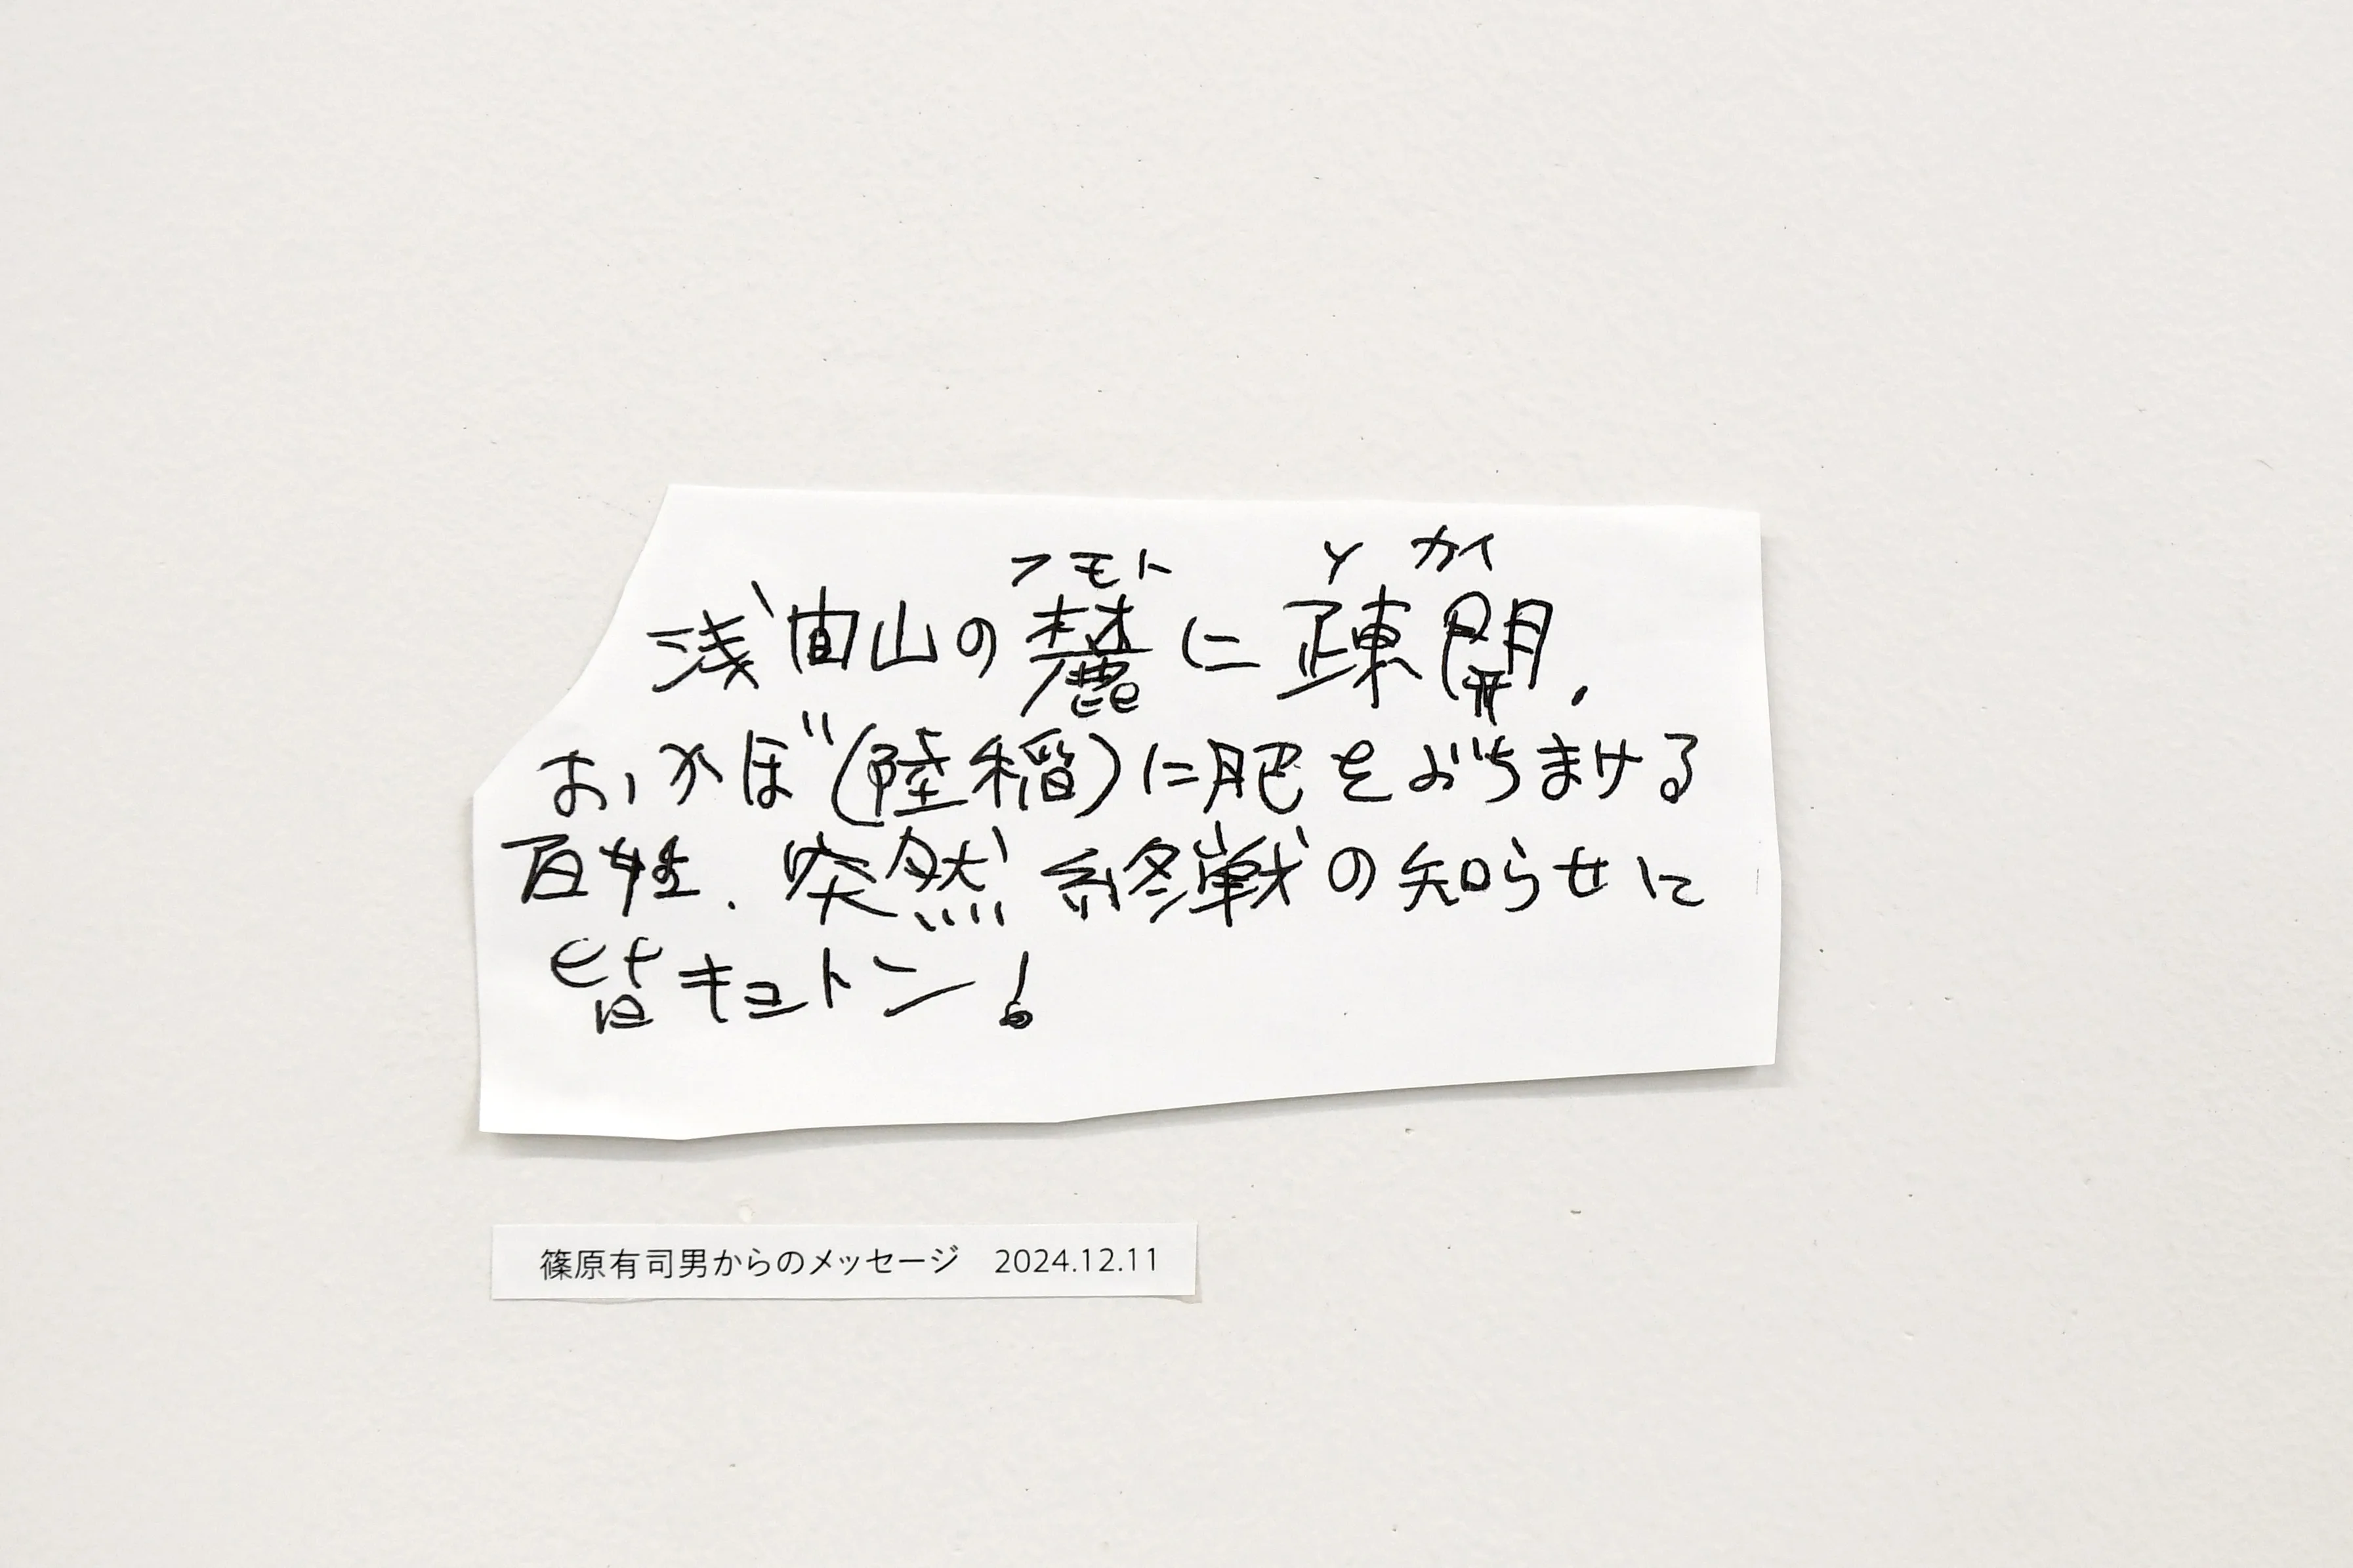 フモト ソカイ
浅間山の麓に疎開.
おかぼ(陸稲)に肥をぶちまける
百姓.突然終戦の知らせに
皆キョトン!
篠原有司男からのメッセージ 2024.12.11